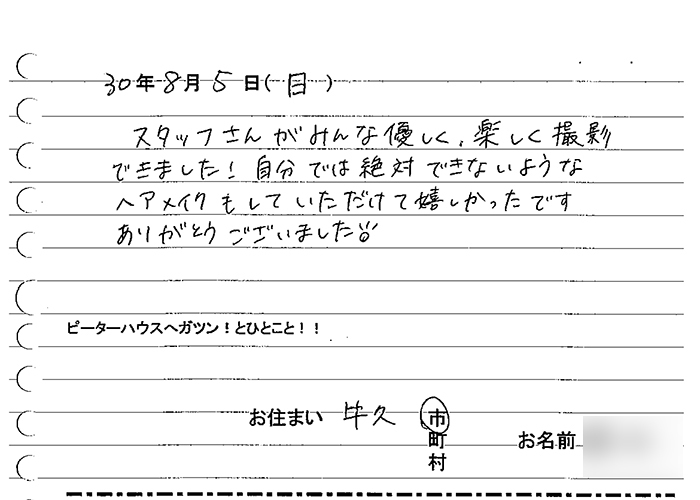 30年8月5日(日)
スタッフさんがみんな優しく、楽しく撮影
できました！自分では絶対できないような
ヘアメイクもしていただけて嬉しかったです
ありがとうございました
ピーターハウスへガツン！とひとこと！！
お住まい 牛久 市
町
村
お名前